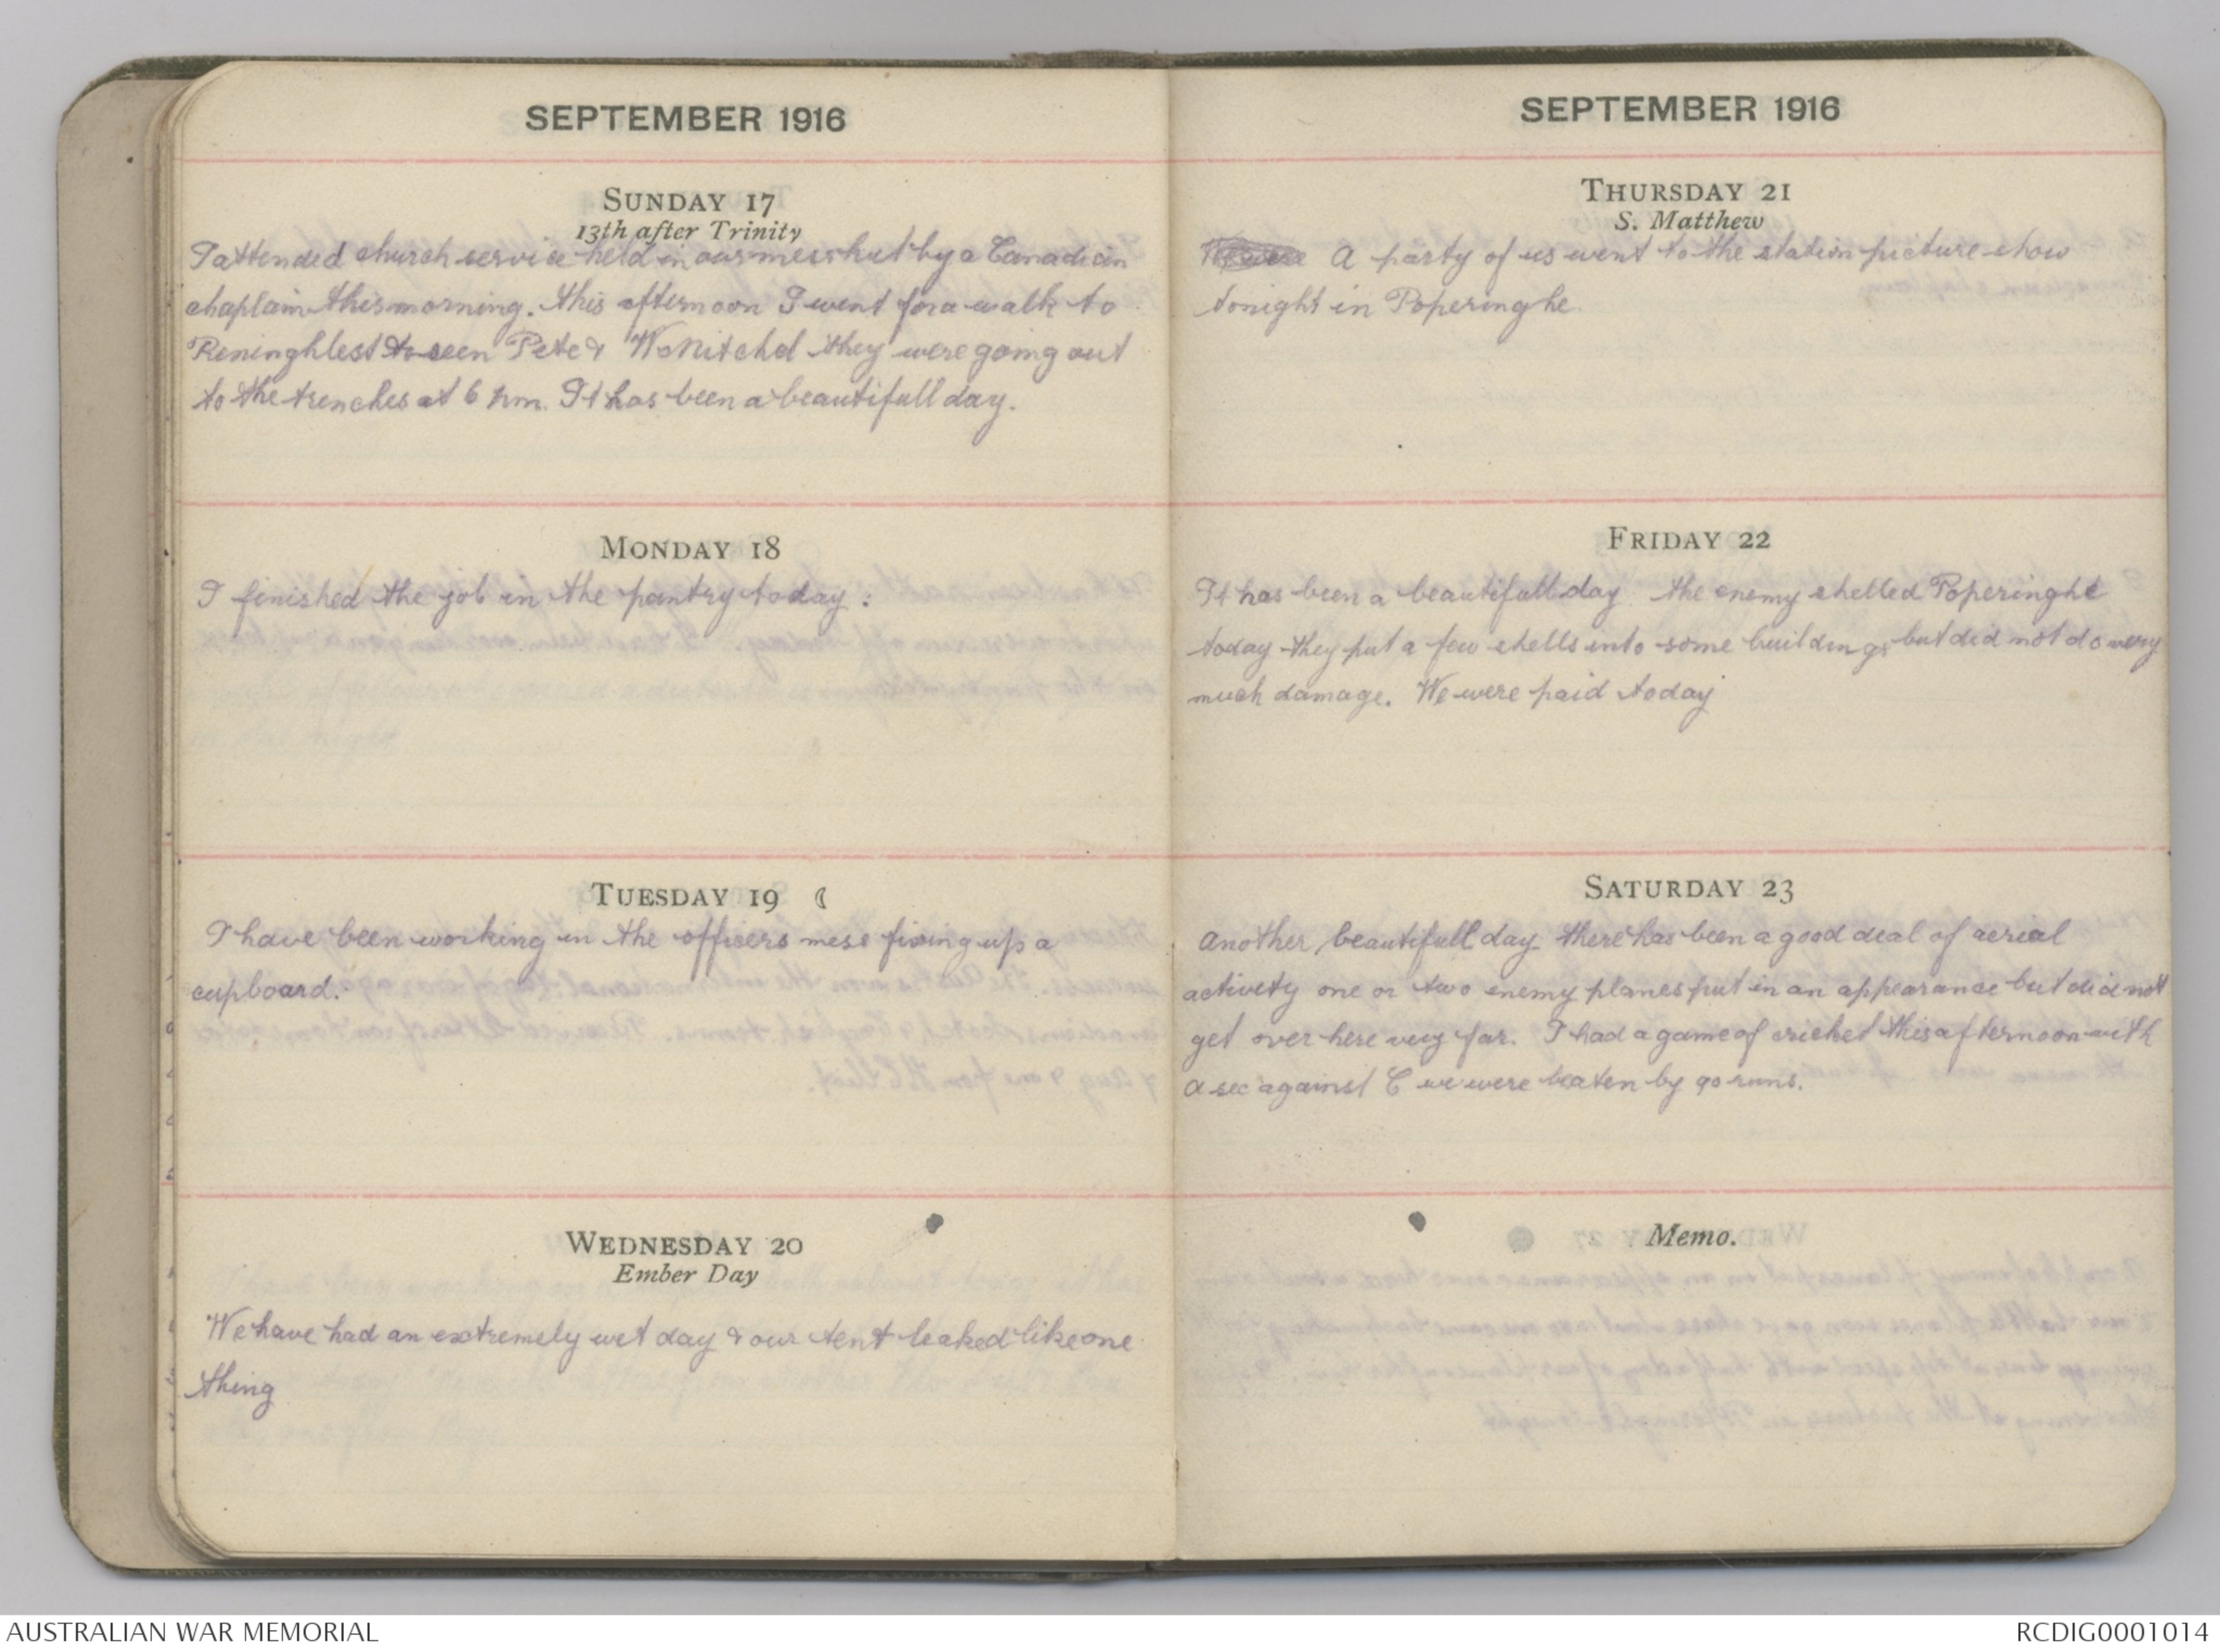 SEPTEMBER 1916
SUNDAY 17
13th after Trinity
I attended church service held in our mess hut by a Canadian
chaplain this morning. this afternoon I went for a walk to
Reninghlest to seen Pete & W Mitchel they were going out
to the trenches at 6 pm. It has been a beautifull day.
MONDAY 18
I finished the job in the pantry today:
TUESDAY 19
I have been working in the officers mess fixing up a
cupboard.
WEDNESDAY 20
Ember Day
We have had an extremely wet day & our tent leaked like one
thing
SEPTEMBER 1916
THURSDAY 21
S. Matthew
A party of us went to the station picture show
tonight in Poperinghe.
FRIDAY 22
It has been a beautifull day the enemy shelled Poperinghe
today they put a few shells into some buildings but did not do very
much damage. We were paid today
SATURDAY 23
Another beautifull day there has been a good deal of aerial
activity one or two enemy planes put in an appearance but did not
get over here very far. I had a game of cricket this afternoon with
A sec against C we were beaten by 90 runs.
Memo.
AUSTRALIAN WAR MEMORIAL
RCDIG0001014